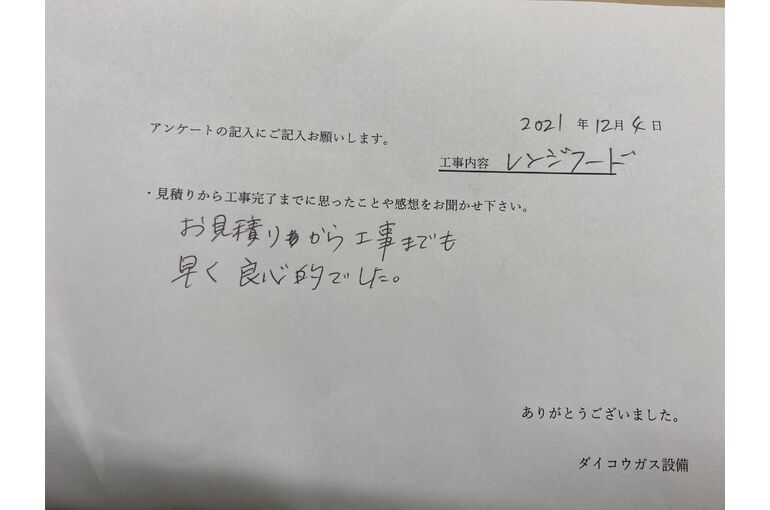 2021年12月4日
アンケートの記入にご記入お願いします。
工事内容 レンジフード
・見積りから工事完了までに思ったことや感想をお聞かせ下さい。
お見積りから工事までも
早く良心的でした。
ありがとうございました。
ダイコウガス設備